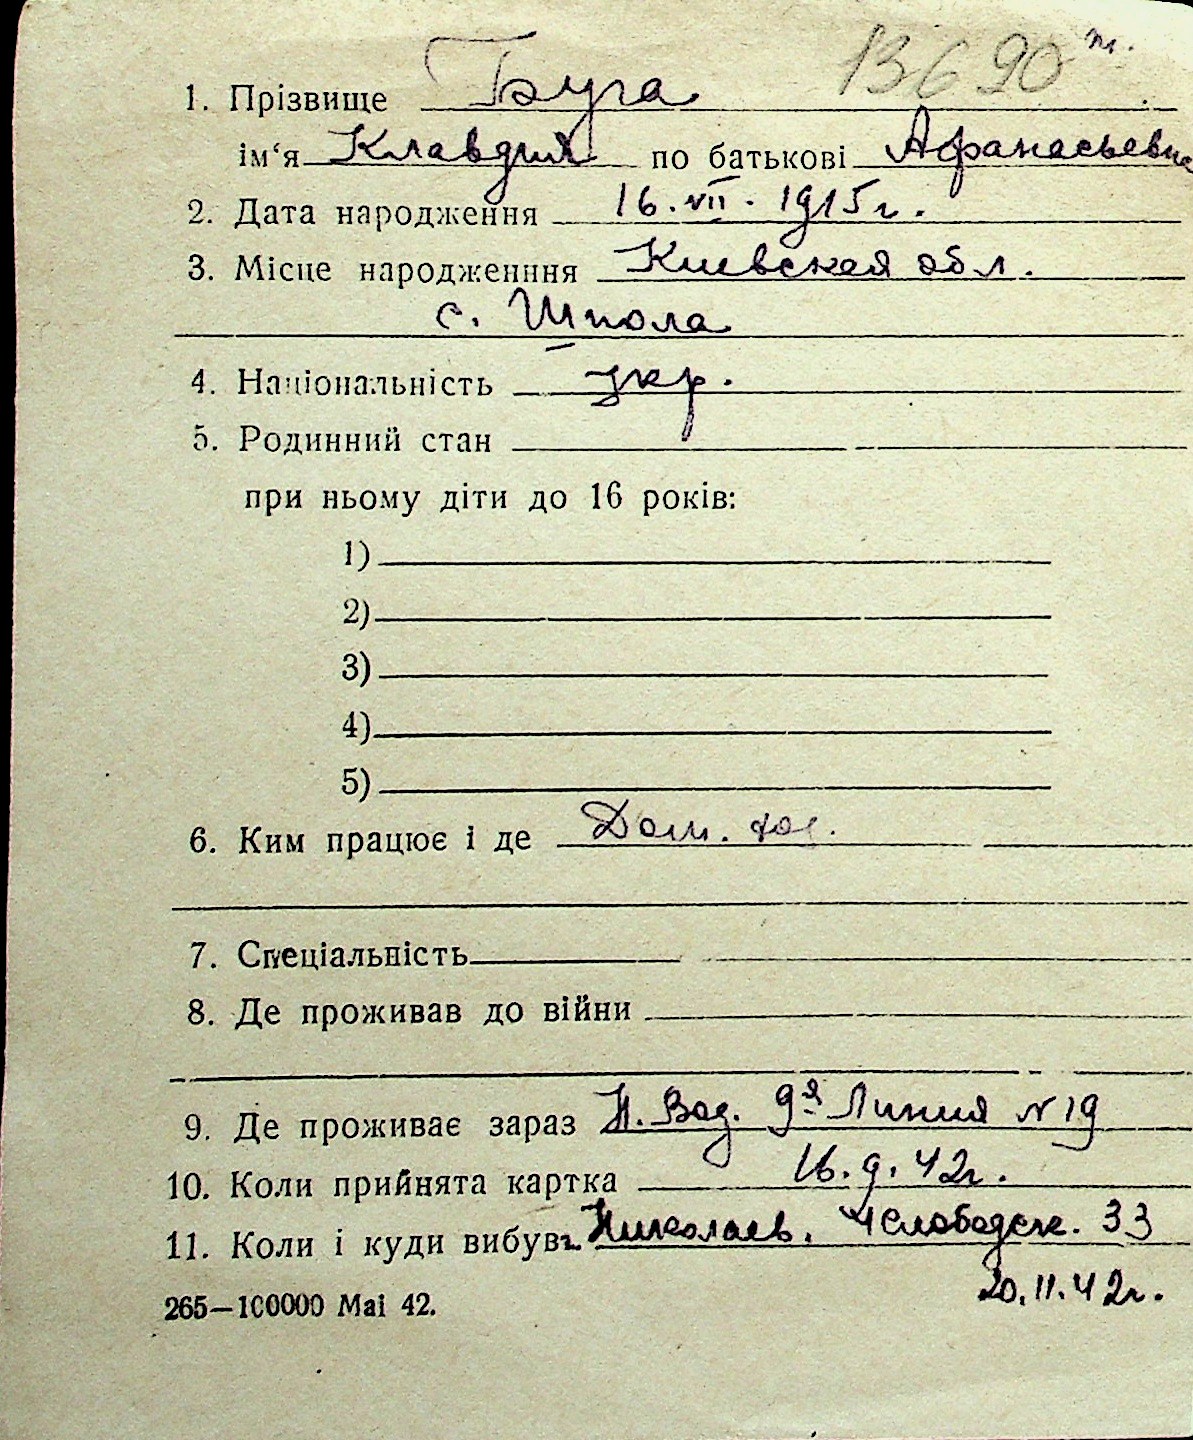 13690
1. Прізвище Буга
ім‘я Клавдия по батькові Афанасьевна
2. Дата народження 16.VII.1915г.
3. Місце народженння Киевская обл.
с. Шпола
4. Національність укр.
5. Родинний стан
при ньому діти до 16 років:
1)
2)
3)
4)
5)
6. Ким працює і де Дом. хоз.
7. Спеціальність
8. Де проживав до війни
9. Де проживає зараз Н. Вод. 9я Линия № 19
10. Коли прийнята картка 16.9.42г.
11. Коли і куди вибув г. Николаев, 4 Слободск. 33
20.11.42г.
265—100000 Mai 42.